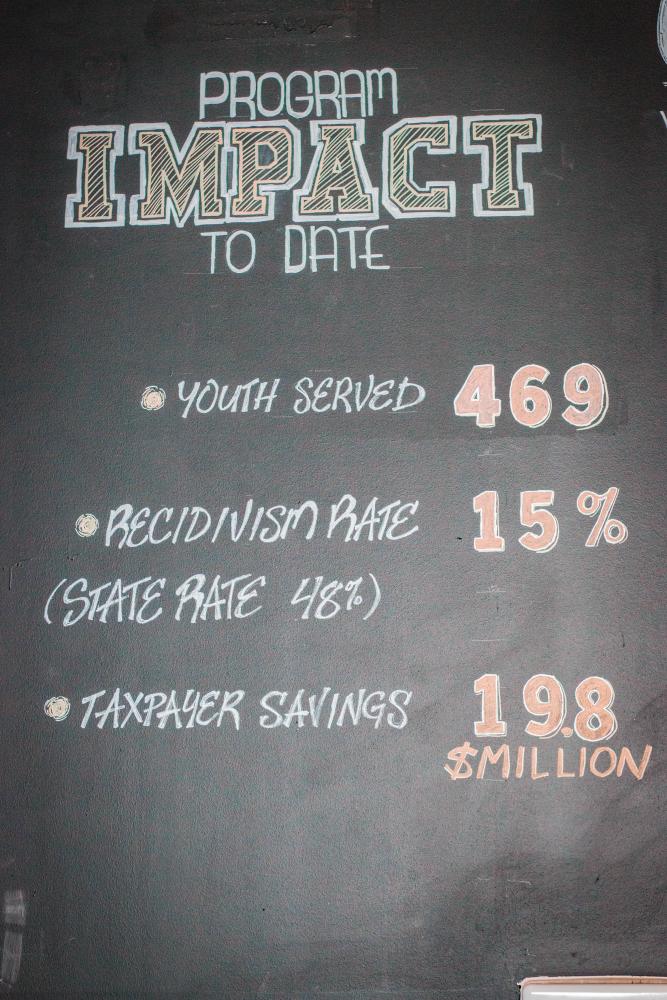 PROGRAM
IMPACT
TO DATE
YOUTH SERVED 469
RECIDIVISM RATE 15%
(STATE RATE 48%)
TAXPAYER SAVINGS 19.8
$MILLION